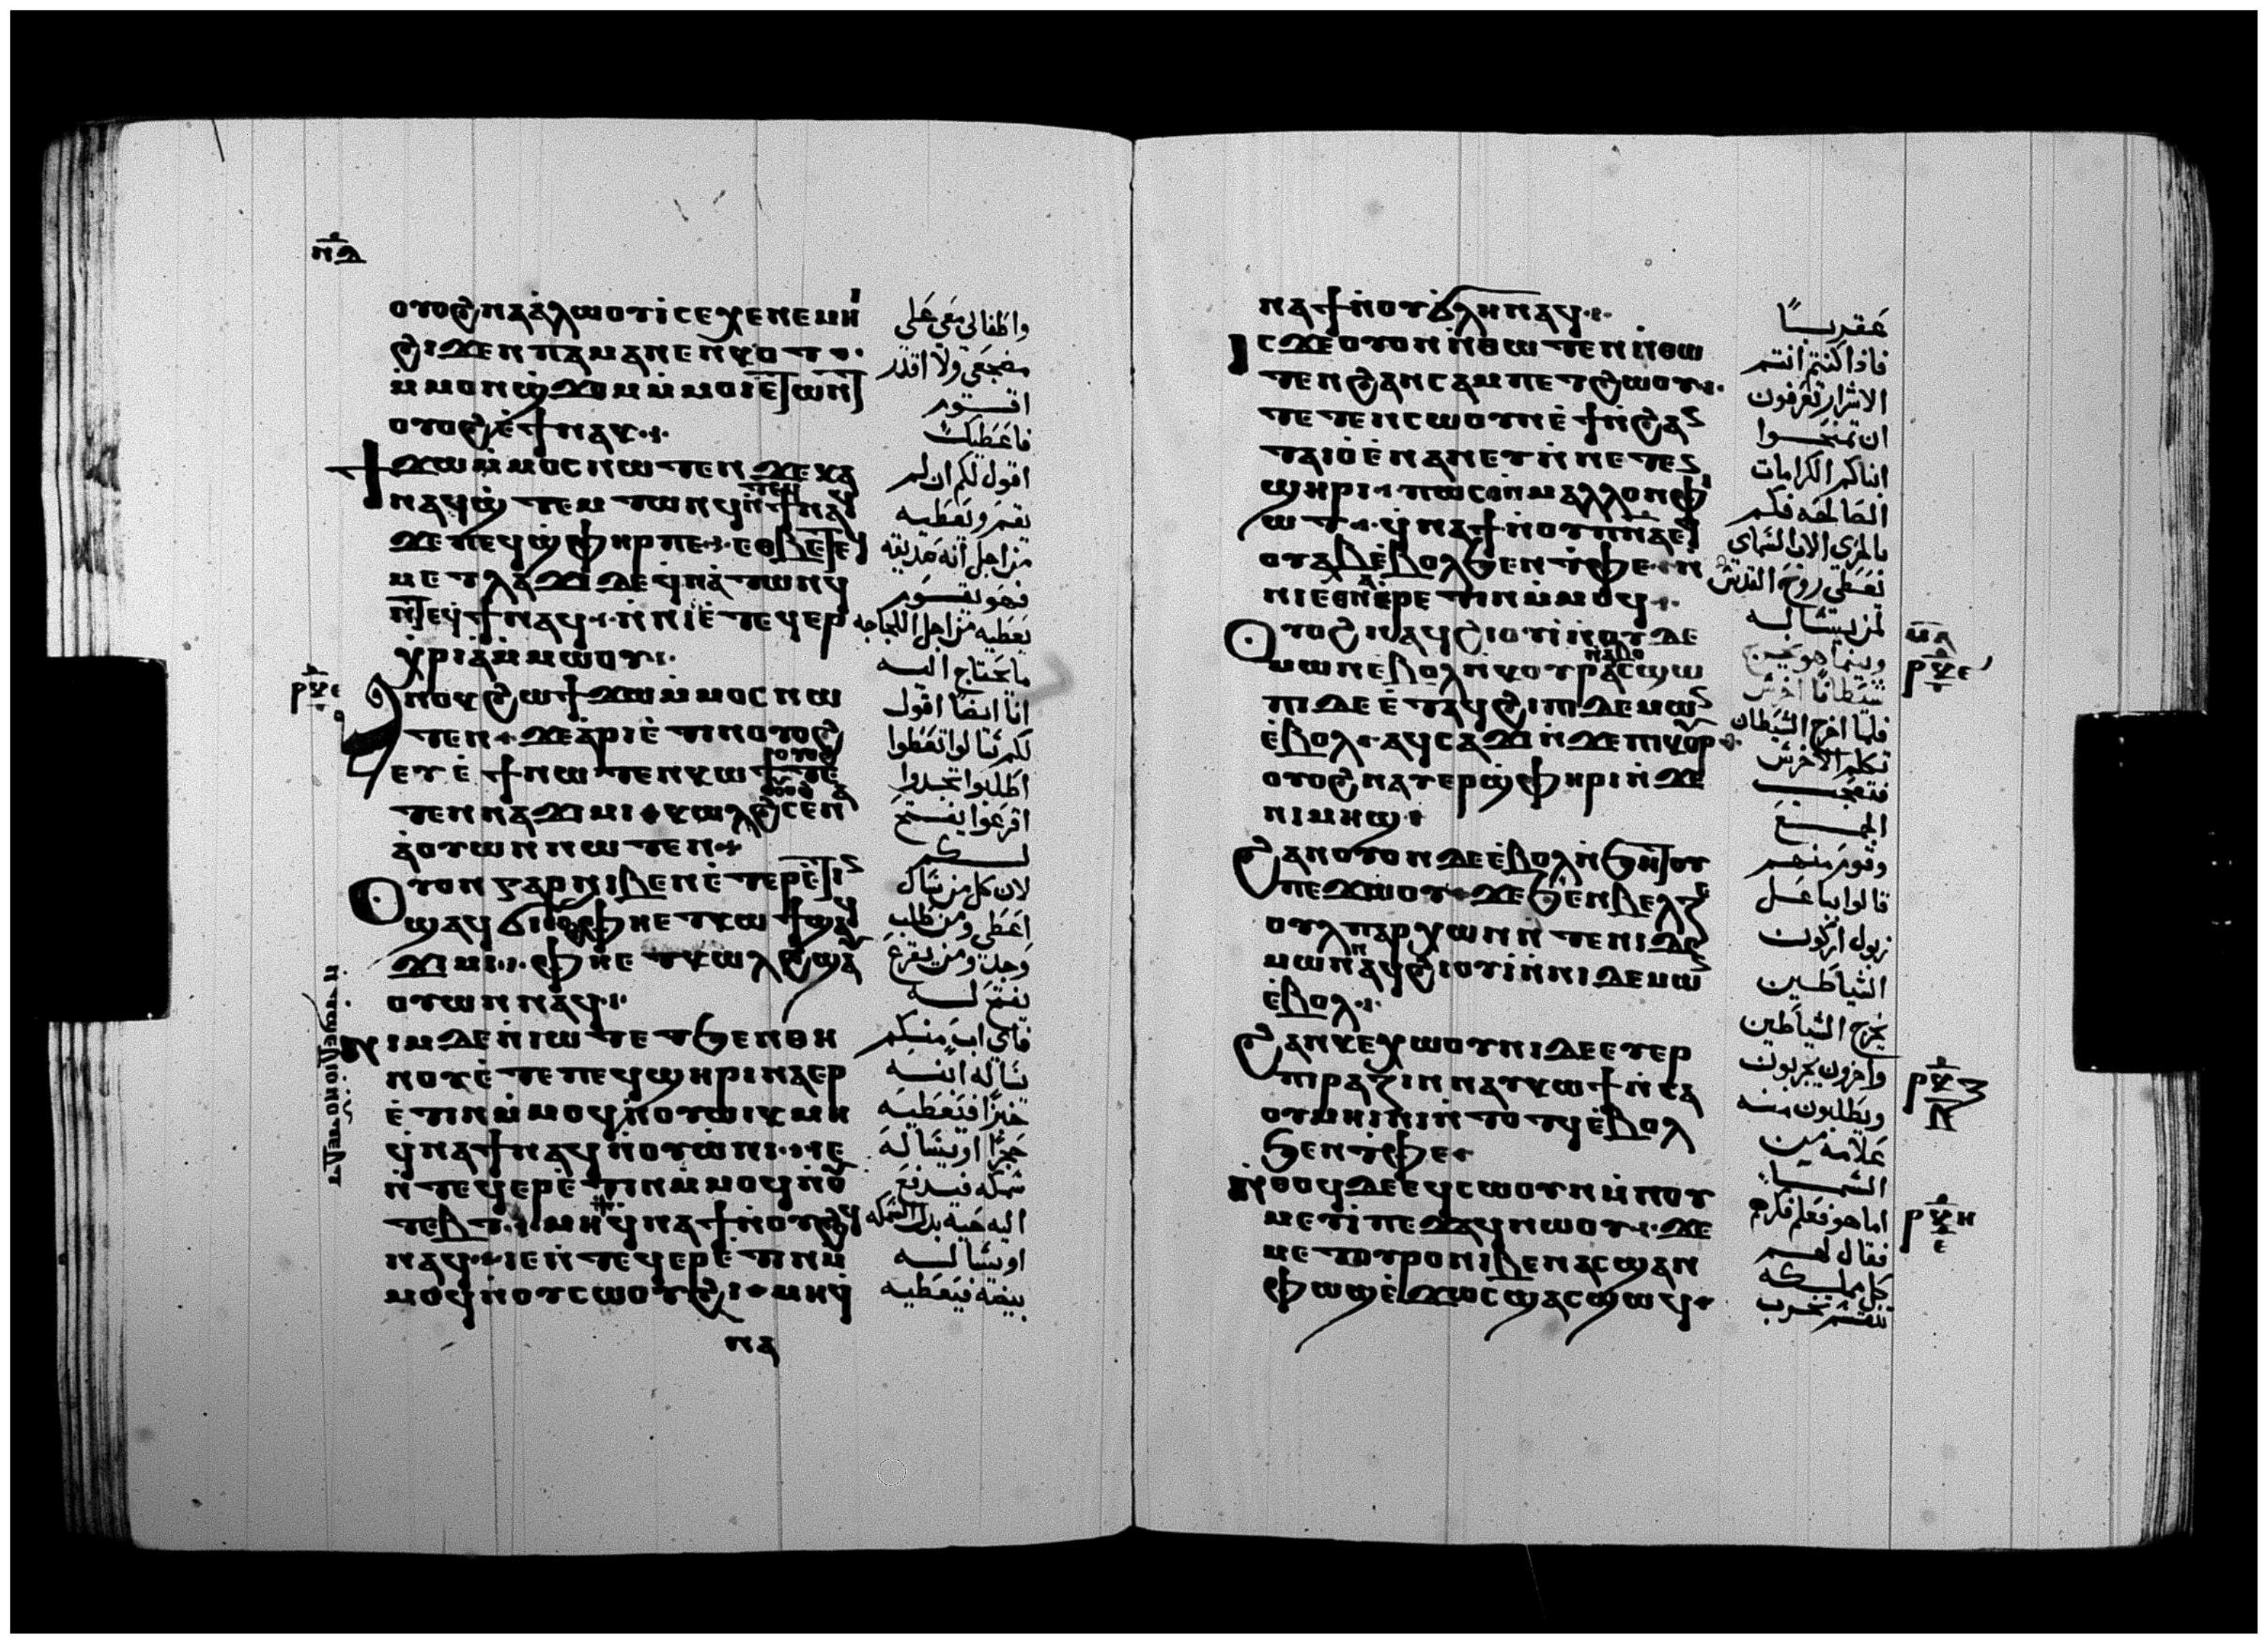 ⲛⲇ
ⲟⲩⲟϩ ⲛⲁⲁⲗⲱⲟⲩⲓ ⲥⲉⲭⲉ ⲛⲉⲙⲏⲓ
ϩⲓϫⲉⲛ ⲡⲁⲙⲁⲛⲉⲛⲕⲟⲧ
ⲙⲙⲟⲛ ϣϫⲟⲙ ⲙⲙⲟⲓ ⲉⲧⲱⲛⲧ
ⲟⲩⲟϩ ⲉϯⲛⲁⲕ
ϯϫⲱ ⲙⲙⲟⲥ ⲛⲱⲧⲉⲛ ϫⲉ ⲭⲁ
ⲛⲁϥϣⲧⲉⲙⲧⲱⲛϥ ⲛⲧⲉϥϯ ⲛⲁϥ
ϫⲉ ⲡⲉϥϣⲫⲏⲣ ⲡⲉ ⲉⲑⲃⲉ ⲧⲉϥ
ⲙⲉⲧⲗⲁϫⲓ ⲇⲉ ϥⲛⲁⲧⲱⲛϥ
ⲛⲧⲉϥϯ ⲛⲁϥ ⲛⲛⲓⲉⲧⲉϥⲉⲣ
ⲭⲣⲓⲁ ⲙⲙⲱⲟⲩ
ⲁⲛⲟⲕ ϩⲱ ϯϫⲱ ⲙⲙⲟⲥ ⲛⲱ
ⲧⲉⲛ ϫⲉ ⲁⲣⲓⲉⲧⲓⲛ ⲟⲩⲟϩ
ⲉⲩⲉϯ ⲛⲱⲧⲉⲛ ⲕⲱϯ ⲟⲩⲟϩ ⲧⲉ
ⲧⲉⲛⲛⲁϫⲓⲙⲓ ⲕⲱⲗϩ ⲟⲩⲟϩ ⲥⲉⲛⲁ
ⲁⲟⲩⲱⲛ ⲛⲱⲧⲉⲛ
ⲟⲩⲟⲛ ⲅⲁⲣ ⲛⲓⲃⲉⲛ ⲉⲧⲉⲣⲉⲧⲓⲛ
ϣⲁϥϭⲓ ⲟⲩⲟϩ ⲫⲏⲉⲧⲕⲱϯ ϣⲁϥ
ϫⲓⲙⲓ ⲫⲏⲉⲧⲕⲱⲗϩ ϣⲁⲩ
ⲟⲩⲱⲛ ⲛⲁϥ
ⲛⲓⲙ ⲇⲉ ⲛⲓⲱⲧ ⲉⲧϧⲉⲛ ⲑⲏ
ⲛⲟⲩ ⲉⲧⲉ ⲡⲉϥϣⲏⲣⲓ ⲛⲁⲉⲣ
ⲉⲧⲓⲛ ⲙⲙⲟϥ ⲛⲟⲩⲱⲓⲕ ⲙⲏ
ϥⲛⲁϯ ⲛⲁϥ ⲛⲟⲩⲱⲛⲓ ⲓⲉ
ⲛⲧⲉϥⲉⲣⲉⲧⲓⲛ ⲙⲙⲟϥ ⲛⲟⲩ
ⲧⲉⲃⲧ ⲙⲏ ϥⲛⲁϯ ⲛⲟⲩϩⲟϥ
ⲛⲁϥ ⲓⲉ ⲛⲧⲉϥⲉⲣⲉⲧⲓⲛ ⲙ
ⲙⲟϥ ⲛⲟⲩⲥⲱⲟⲩϩⲓ ⲙⲏ ϥ
ⲛⲁ
واطفالى معى على
مضجعى ولا اقدر
اقوم
فاعطيك
اقول لكم ان لم
يقم ويعطيه
من اجل انه صديقه
فهو يقوم
يعطيه من اجل اللجاجه
ما يحتاج اليه
انا ايضا اقول
لكم سالوا تعطوا
اطلبوا تجدوا
اقرعوا يفتح
لكم
لان كل من سال
اعطى ومن طلب
وجد ومن يقرع
يفتح له
فاى اب منكم
يساله ابنه
خبزا فيعطيه
حجرا او يساله
سمكه فيدفع
اليه حيه بدل السمكه
او يساله
بيضه فيعطيه
ⲣⲕⲉ
ⲛⲁϯ ⲛⲟⲩϭⲗⲏ ⲛⲁϥ
ⲓⲥϫⲉ ⲟⲩⲟⲛ ⲛⲑⲱⲧⲉⲛ ⲛⲑⲱ
ⲧⲉⲛ ϩⲁⲛⲥⲁⲙⲡⲉⲧϩⲱⲟⲩ
ⲧⲉⲧⲉⲛⲥⲱⲟⲩⲛ ⲉϯ ⲛϩⲁⲛ
ⲧⲁⲓⲟ ⲉⲛⲁⲛⲉⲩ ⲛⲛⲉⲧⲉⲛ
ϣⲏⲣⲓ ⲡⲱⲥⲟⲛ ⲙⲁⲗⲗⲟⲛ ⲫⲓ
ⲱⲧ ϥⲛⲁϯ ⲛⲟⲩⲡⲛⲁ ⲉϥ
ⲟⲩⲁⲃ ⲉⲃⲟⲗϧⲉⲛ ⲧⲫⲉ ⲛ
ⲛⲓⲉⲑⲛⲁⲉⲣⲉⲧⲓⲛ ⲙⲙⲟϥ
ⲟⲩⲟϩ ⲛⲁϥϩⲓⲟⲩⲓ ⲛⲟⲩⲇⲉ
ⲙⲱⲛ ⲉⲃⲟⲗ ⲛⲕⲟⲩⲣ ⲁⲥϣⲱ
ⲡⲓ ⲇⲉ ⲉⲧⲁϥϩⲓ ⲡⲓⲇⲉⲙⲱⲛ
ⲉⲃⲟⲗ ⲁϥⲥⲁϫⲓ ⲛϫⲉ ⲡⲓⲕⲟⲩⲣ
ⲟⲩⲟϩ ⲛⲁⲩⲉⲣϣⲫⲏⲣⲓ ⲛϫⲉ
ⲛⲓⲙⲏϣ
ϩⲁⲛⲟⲩⲟⲛ ⲇⲉ ⲉⲃⲟⲗ ⲛϧⲏⲧⲟⲩ
ⲡⲉϫⲱⲟⲩ ϫⲉ ϧⲉⲛ ⲃⲉⲗⲍⲉ
ⲟⲩⲗ ⲡⲁⲣⲭⲱⲛ ⲛⲧⲉ ⲛⲓⲇⲉ
ⲙⲱⲛ ⲁϥϩⲓⲟⲩⲓ ⲛⲛⲓⲇⲉⲙⲱⲛ
ⲉⲃⲟⲗ
ϩⲁⲛⲕⲉⲭⲱⲟⲩⲛⲓ ⲇⲉ ⲉⲩⲉⲣ
ⲡⲓⲣⲁⲍⲓⲛ ⲛⲁⲩⲕⲱϯ ⲛⲥⲁ
ⲟⲩⲙⲏⲓⲛⲓ ⲛⲧⲟⲧϥ ⲉⲃⲟⲗ
ϧⲉⲛ ⲧⲫⲉ
ⲛⲑⲟϥ ⲇⲉ ⲉϥⲥⲱⲟⲩⲛ ⲛⲛⲟⲩ
ⲙⲉⲩⲓ ⲡⲉϫⲁϥ ⲛⲱⲟⲩ ϫⲉ
ⲙⲉⲧⲟⲩⲣⲟ ⲛⲓⲃⲉⲛ ⲁⲥϣⲁⲛ
ⲫⲱϣ ⲉϫⲱⲥ ϣⲁⲥϣⲱϥ
عقربا
فاذا كنتم انتم
الاشرار تعرفون
ان تمنحوا
ابناكم الكرامات
الصالحه فكم
بالحرى الاب السماى
يعطى روح القدس
لمن يساله
وبينما هو يخرج
شيطانا اخرس
فلما اخرج الشيطان
تكلم الاخرس
فتعجب
الجمع
وقوم منهم
قالوا ببا عل
زبول اركون
الشياطين
يخرج الشياطين
واخرون يجربون
ويطلبون منه
علامه من
السماء
اما هو فعلم فكرهم
فقال لهم
كل مملكه
تنقسم تخرب
ⲙⲁ
ⲣⲕⲍ
ⲣⲕⲏ
ⲉ